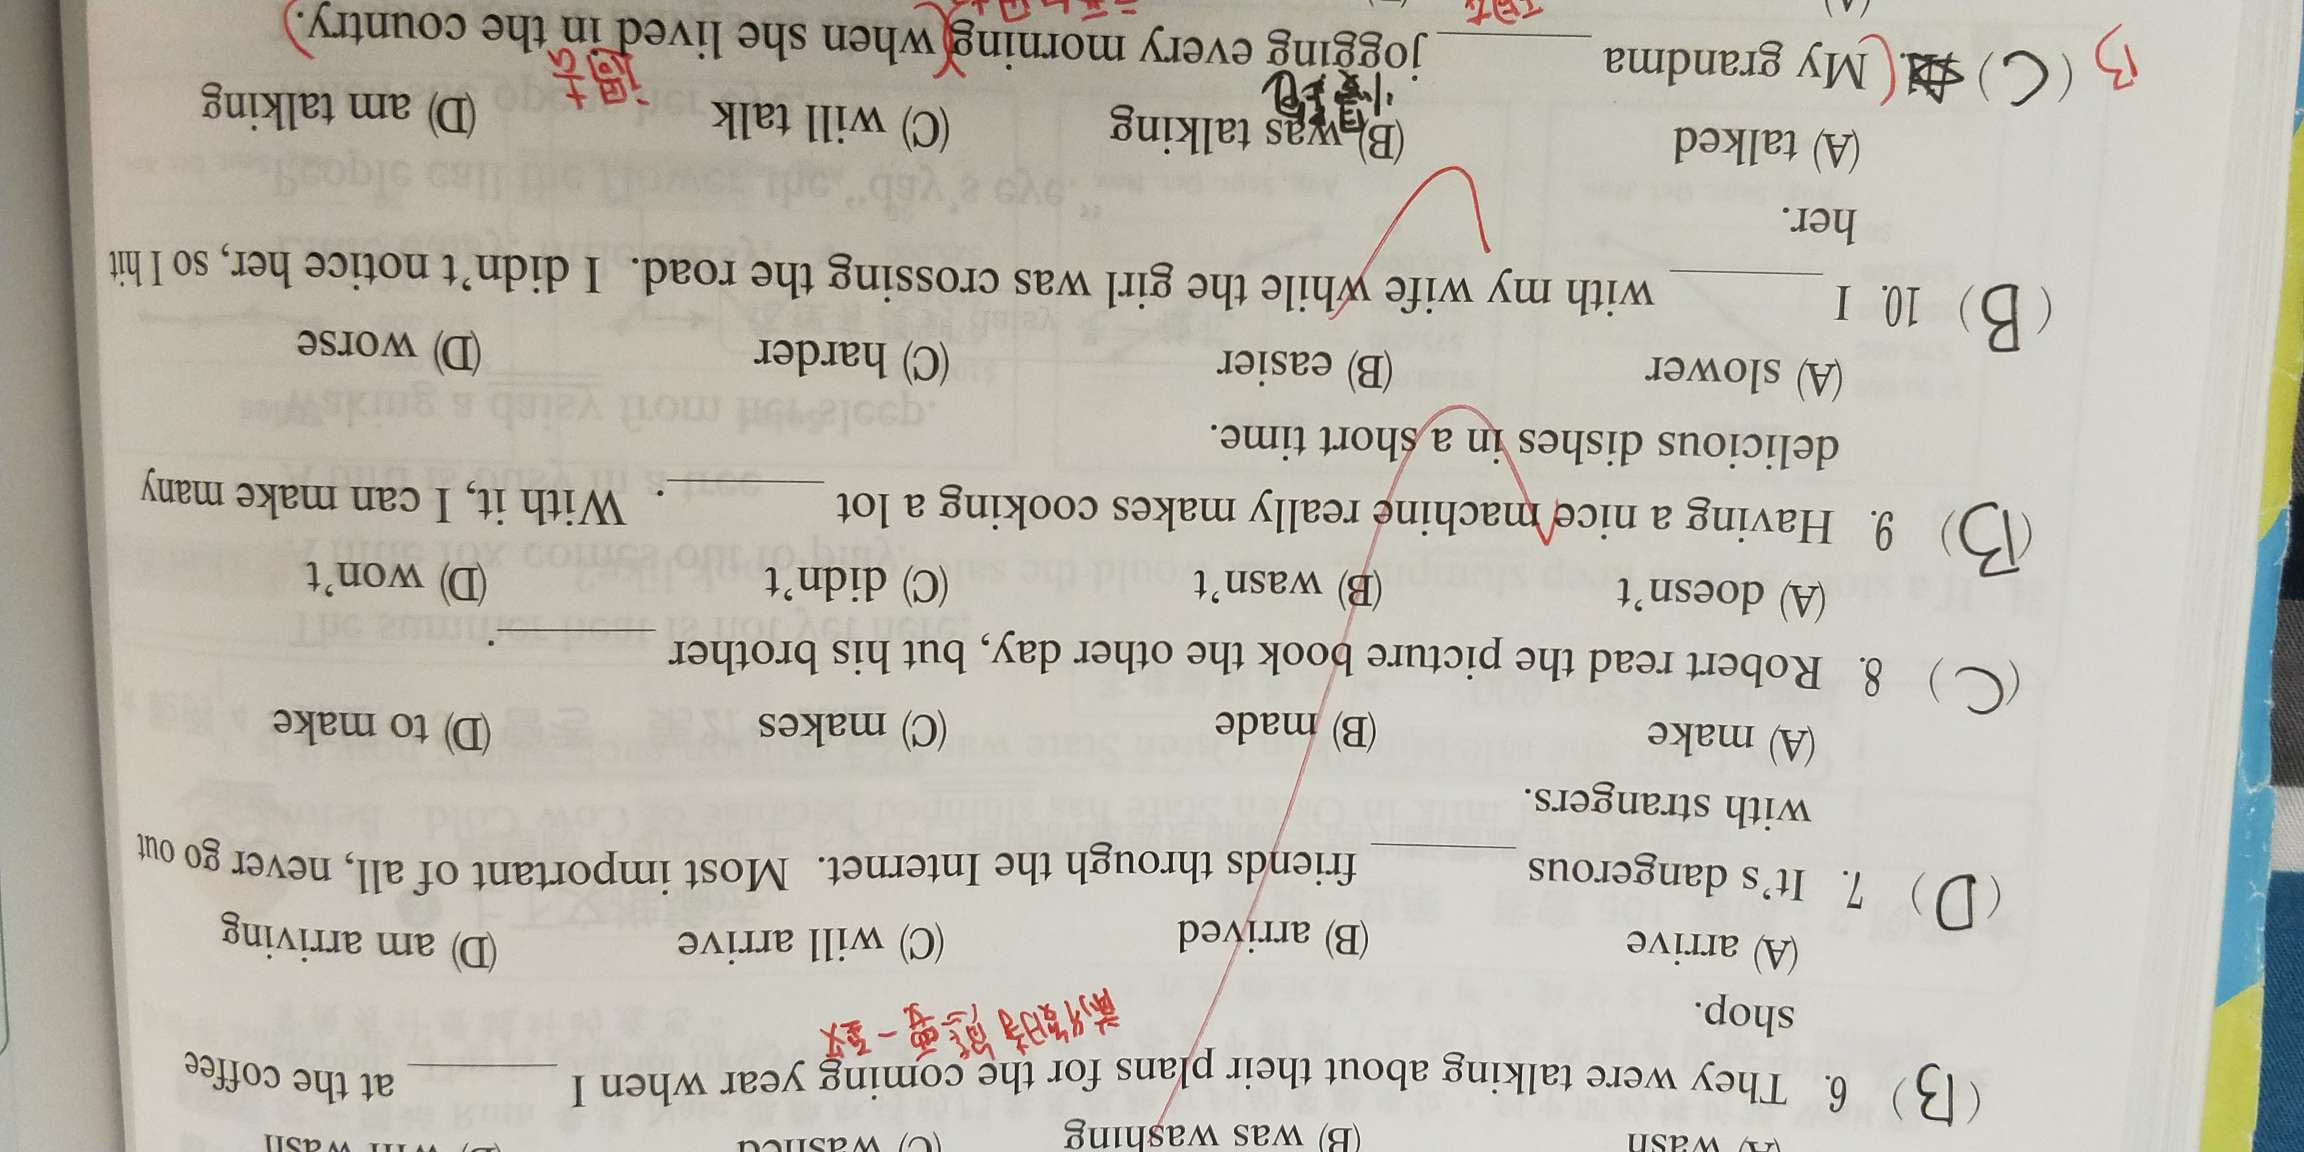 (B) was washing
(B) 6. They were talking about their plans for the coming year when I ______ at the coffee
shop.
(A) arrive (B) arrived (C) will arrive (D) am arriving
(D) 7. It's dangerous ______ friends through the Internet. Most important of all, never go out
with strangers.
(A) make (B) made (C) makes (D) to make
(C) 8. Robert read the picture book the other day, but his brother ______.
(A) doesn't (B) wasn't (C) didn't (D) won't
(B) 9. Having a nice machine really makes cooking a lot ______. With it, I can make many
delicious dishes in a short time.
(A) slower (B) easier (C) harder (D) worse
(B) 10. I ______ with my wife while the girl was crossing the road. I didn't notice her, so I hit
her.
(A) talked (B) was talking (C) will talk (D) am talking
B (C) My grandma ______ jogging every morning when she lived in the country.